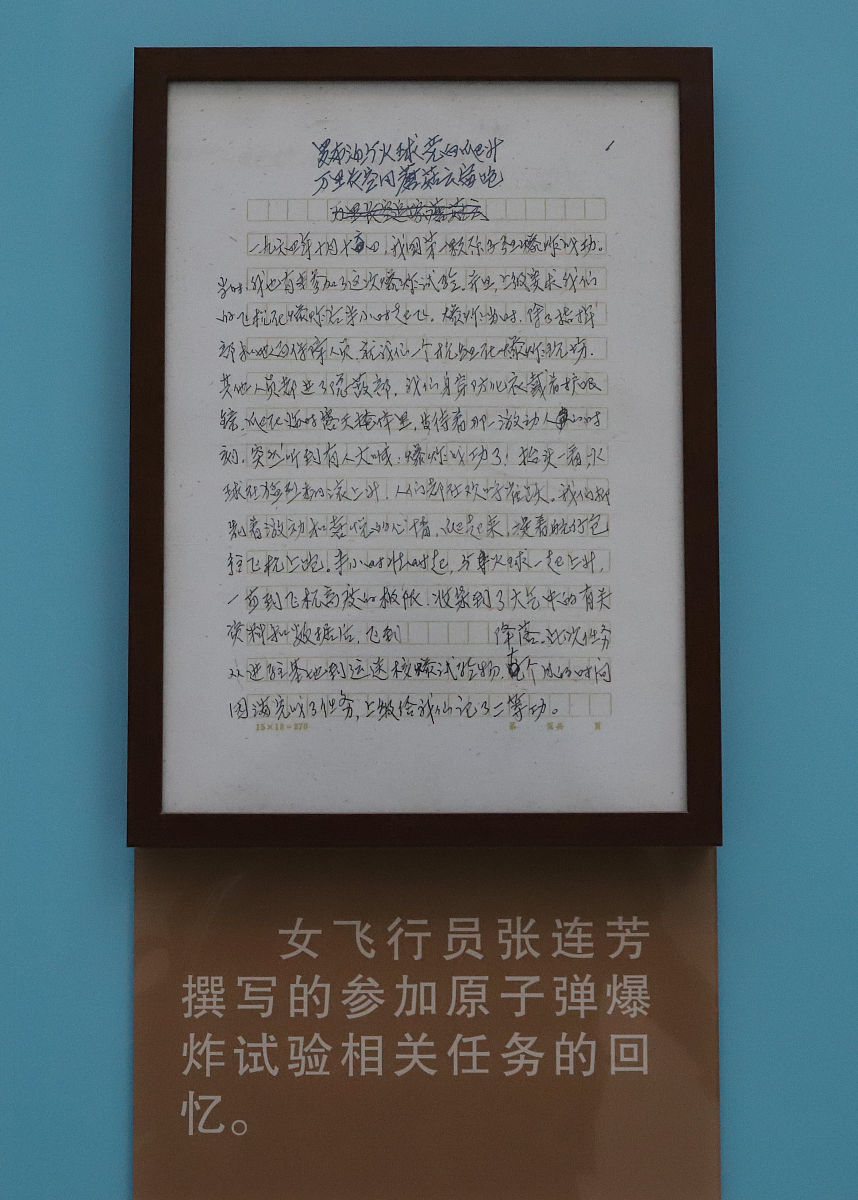 罗布泊火球完
万里长空 蘑菇云
1
万里长空 蘑菇云
一九六四年十月十六日，我国第一颗原子弹爆炸成功。
当时，我也有幸参加了这次爆炸试验。并且上级要求我们
的飞机在爆炸后半小时起飞。爆炸当时，除了指挥
部和 的保障人员，就我们一个机组在爆炸现场，
其他人员都进了隐蔽部，我们身穿防化衣戴着护眼
镜， 在 露天掩体里，等待着那激动人心的时
刻，突然听到有人大喊：爆炸成功了！抬头一看火
球 上升，人们都在欢呼 。我们
着激动和喜悦的心情， 起来，提着航行包
往飞机上跑。半小时准时起，与 火球一起上升，
一直到飞机高度的极限，收录到了大气中的有关
资料和数据后，飞到 降落。此次任务
从进驻基地到运送核爆试验物， 个 的时间
圆满完成了任务，上级给我们记了二等功。
15×18=270 第 页共 页
女飞行员张连芳
撰写的参加原子弹爆
炸试验相关任务的回
忆。